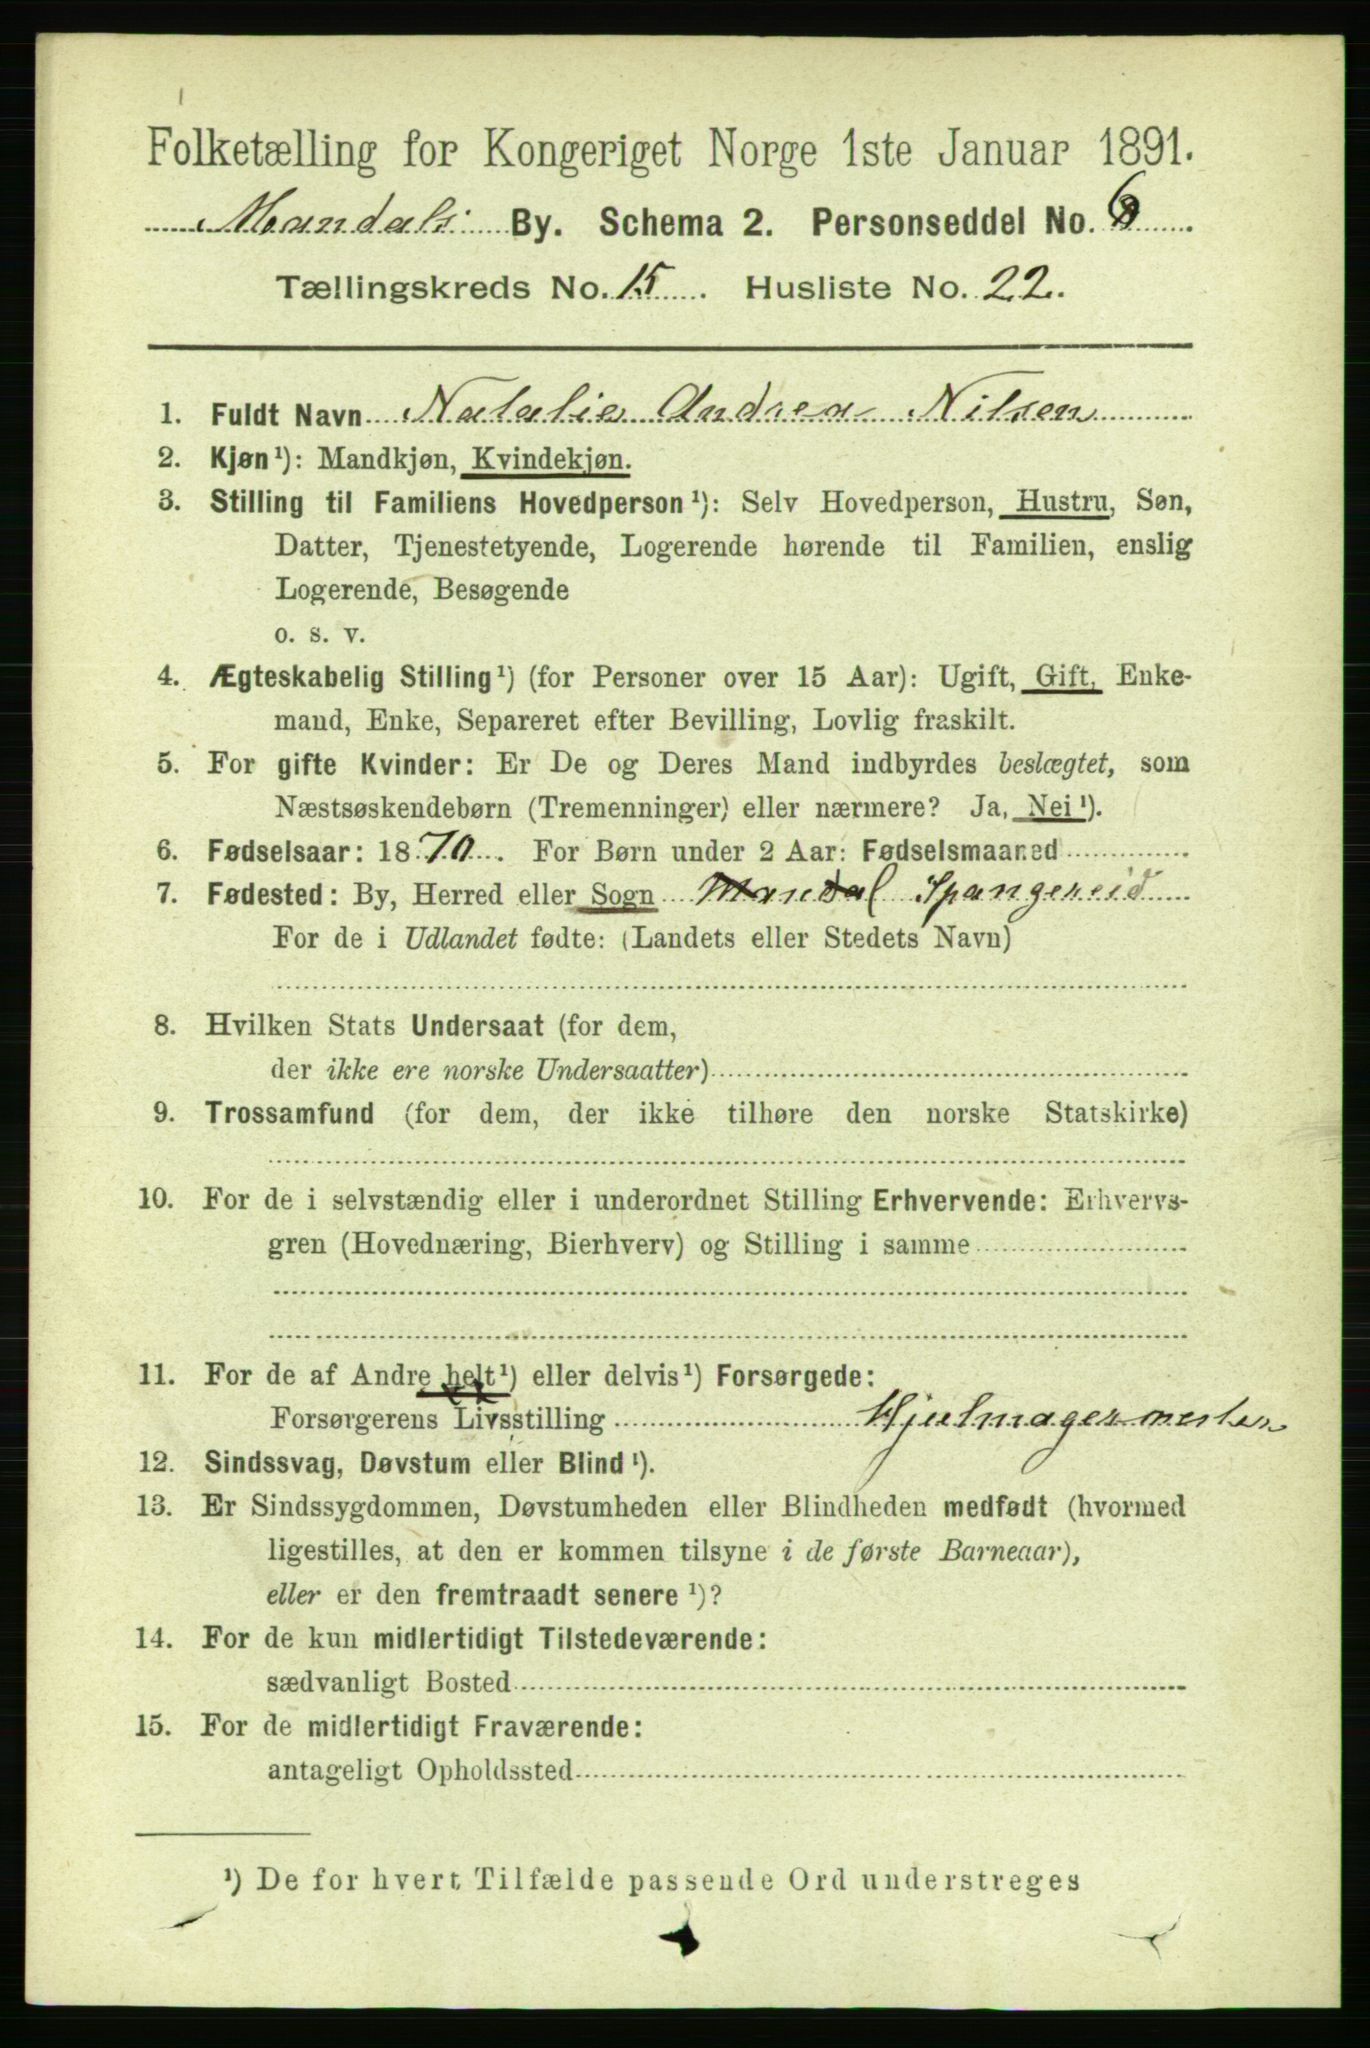 Folketælling for Kongeriget Norge 1ste Januar 1891.
Mandals By. Schema 2. Personseddel No. 6
Tællingskreds No. 15. Husliste No. 22.
1. Fuldt Navn Natalie Andrea Nilsen
2. Kjøn¹): Mandkjøn, Kvindekjøn.
3. Stilling til Familiens Hovedperson¹): Selv Hovedperson, Hustru, Søn,
Datter, Tjenestetyende, Logerende hørende til Familien, enslig
Logerende, Besøgende
o. s. v.
4. Ægteskabelig Stilling¹) (for Personer over 15 Aar): Ugift, Gift, Enke-
mand, Enke, Separeret efter Bevilling, Lovlig fraskilt.
5. For gifte Kvinder: Er De og Deres Mand indbyrdes beslægtet, som
Næstsøskendebørn (Tremenninger) eller nærmere? Ja, Nei¹).
6. Fødselsaar: 1870. For Børn under 2 Aar: Fødselsmaaned
7. Fødested: By, Herred eller Sogn Mandal Spangereid
For de i Udlandet fødte: (Landets eller Stedets Navn)
8. Hvilken Stats Undersaat (for dem,
der ikke ere norske Undersaatter)
9. Trossamfund (for dem, der ikke tilhøre den norske Statskirke)
10. For de i selvstændig eller i underordnet Stilling Erhvervende: Erhvervs-
gren (Hovednæring, Bierhverv) og Stilling i samme
11. For de af Andre helt¹) eller delvis¹) Forsørgede:
Forsørgerens Livsstilling Hjulmagermester
12. Sindssvag, Døvstum eller Blind¹).
13. Er Sindssygdommen, Døvstumheden eller Blindheden medfødt (hvormed
ligestilles, at den er kommen tilsyne i de første Barneaar),
eller er den fremtraadt senere¹)?
14. For de kun midlertidigt Tilstedeværende:
sædvanligt Bosted
15. For de midlertidigt Fraværende:
antageligt Opholdssted
¹) De for hvert Tilfælde passende Ord understreges